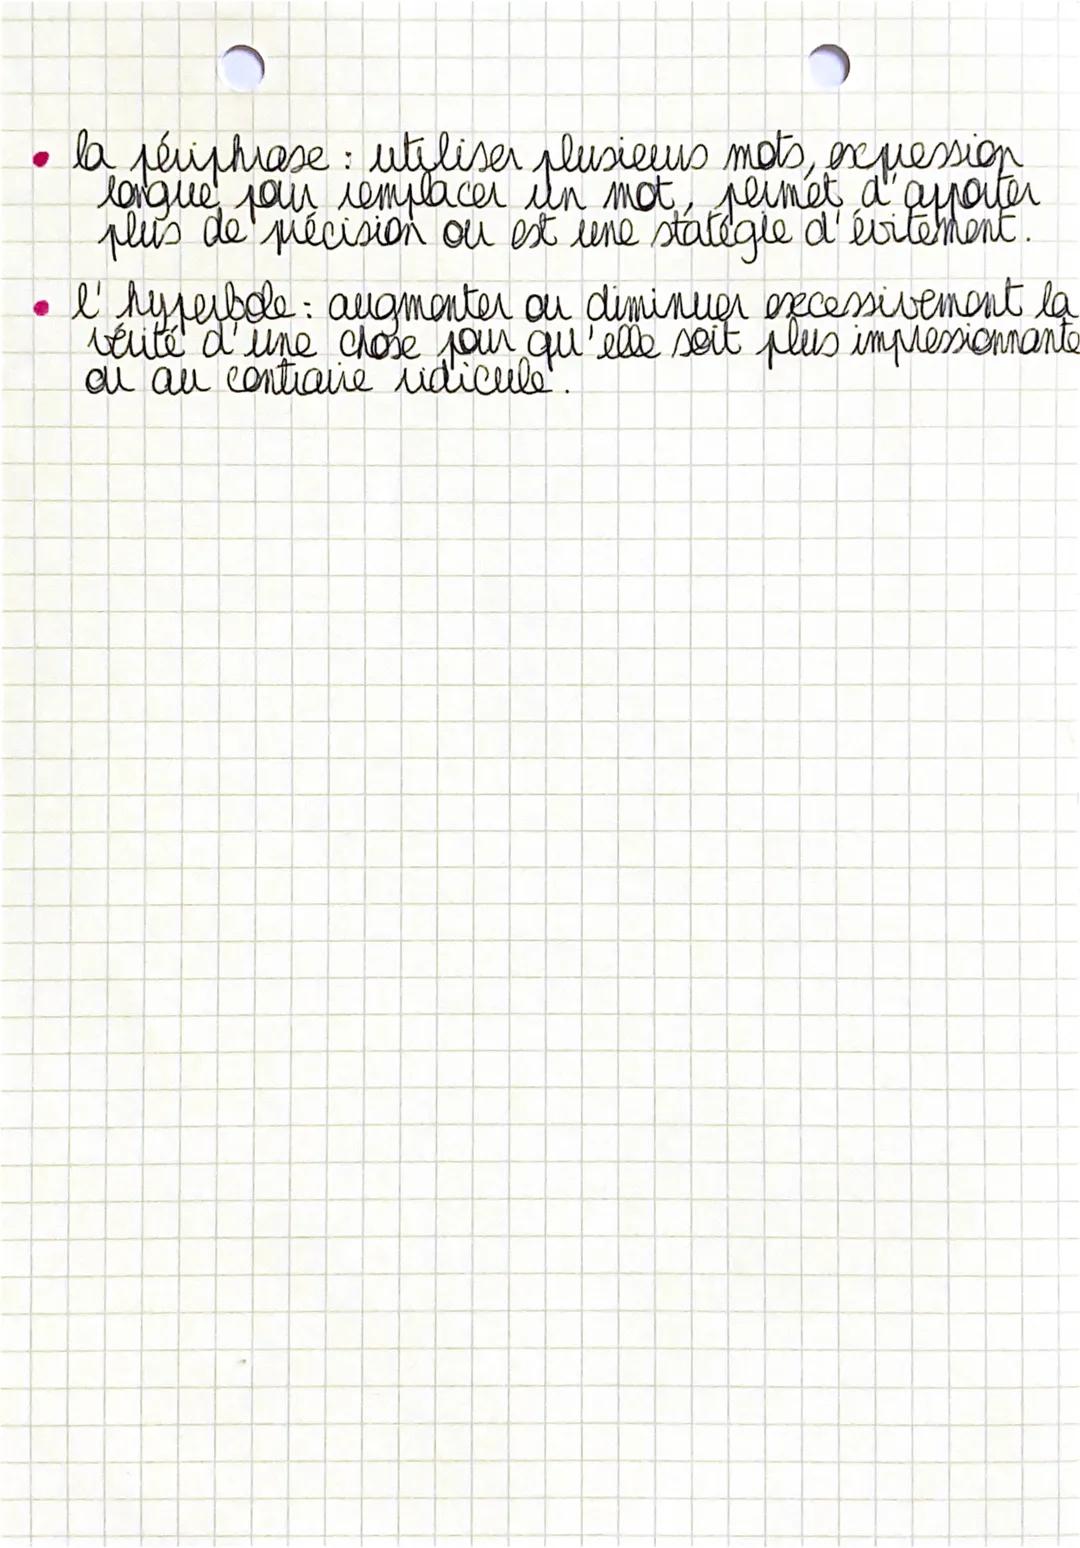 • la périphrase : utiliser plusieurs mots, expression
longue pour remplacer un mot, permet d'apporter
plus de précision ou est une statégie d'évitement.
• l'hyperbole : augmenter ou diminuer excessivement la
vérité d'une chose pour qu'elle soit plus impressionnante
ou au contraire ridicule.